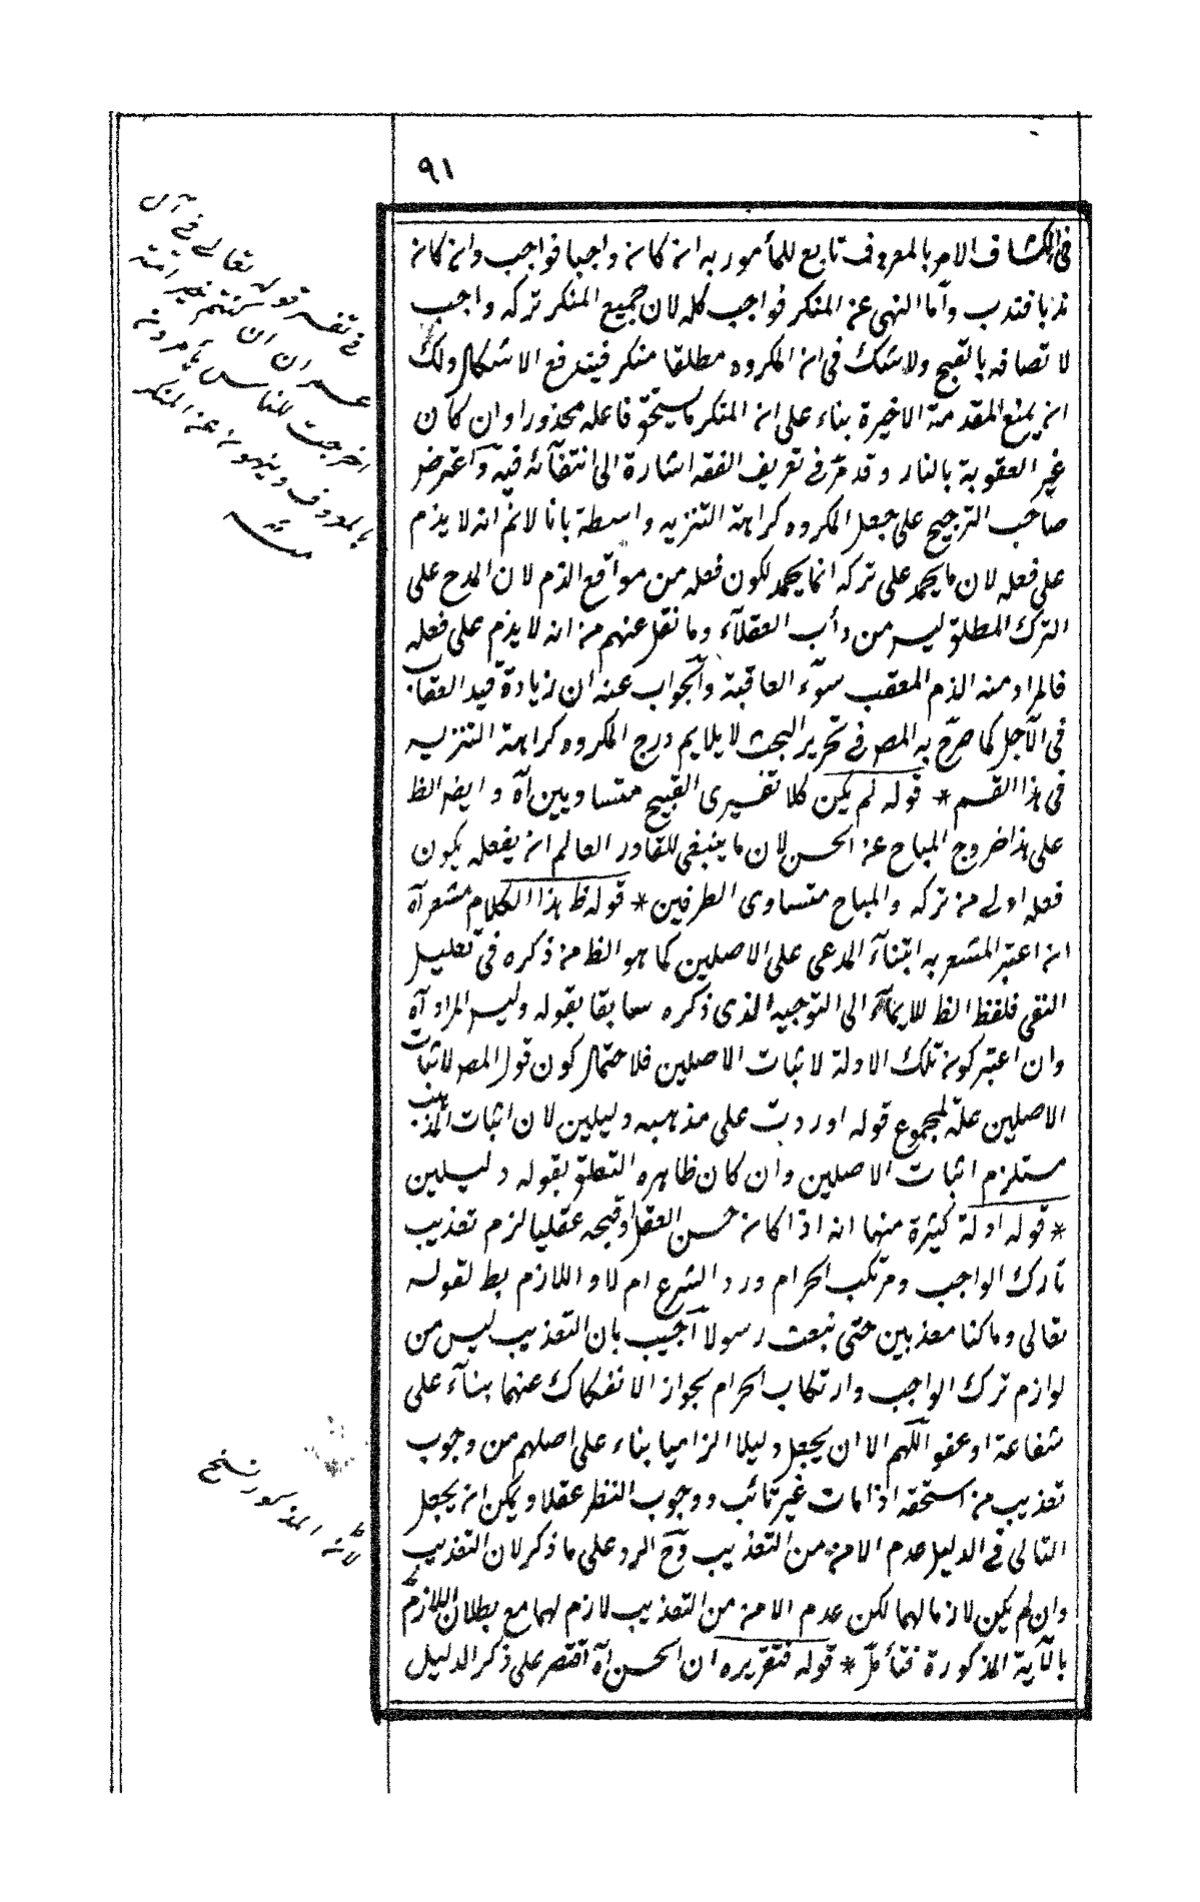 ٩١
فى الكشاف الامر بالمعروف تابع للمأمور به ان كان واجبا فواجب وان كان
ندبا فندب وأما النهى عن المنكر فواجب كله لان جميع المنكر تركه واجب
لاتصافه بالقبح ولا شك فى ان المكروه مطلقا منكر فيندفع الاشكال ولك
ان يمنع المقدمة الاخيرة بناء على ان المنكر ما يستحق فاعله محذورا وان كان
غير العقوبة بالنار وقد مر فى تعريف الفقه اشارة الى انتفائه فيه واعترض
صاحب الترجيح على جعل المكروه كراهة التنزيه واسطة بانا لانم انه لا يذم
على فعله لان ما يحمد على تركه انما يحمد لكون فعله من مواقع الذم لان المدح على
الترك المطلق ليس من دأب العقلآء وما نقل عنهم من انه لا يذم على فعله
فالمراد منه الذم المعقب سوء العاقبة والجواب عنه ان زيادة قيد العقاب
فى الآجل كما صرح به المص فى تحرير البحث لا يلايم درج المكروه كراهة التنزيه
فى هذا القسم * قوله لم يكن كلا تفسيرى القبيح متساويين آه وايضا الظ
على هذا خروج المباح عن الحسن لان ما ينبغى للقادر العالم ان يفعله يكون
فعله اولى من تركه والمباح متساوى الطرفين * قوله ظ هذا الكلام مشعر آه
ان اعتبر المشعر به ابتنآء المدعى على الاصلين كما هو الظ من ذكره فى تعليل
النفى فلفظ الظ للايمآء الى التوجيه الذى ذكره سابقا بقوله وليس المراد آه
وان اعتبر كون تلك الادلة لاثبات الاصلين فلاحتمال كون قول المص لاثبات
الاصلين علة لمجموع قوله اوردت على مذهبه دليلين لان اثبات المذهب
مستلزم اثبات الاصلين وان كان ظاهره التعلق بقوله دليلين
* قوله ادلة كثيرة منها انه اذا كان حسن العقل او قبحه عقليا لزم تعذيب
تارك الواجب ومرتكب الحرام ورد الشرع ام لا واللازم بط لقوله
تعالى وما كنا معذبين حتى نبعث رسولا أجيب بان التعذيب ليس من
لوازم ترك الواجب وارتكاب الحرام لجواز الانفكاك عنهما بنآء على
شفاعة او عفو اللهم الا ان يجعل دليلا الزاميا بناء على اصلهم من وجوب
تعذيب من استحقه اذا مات غير تائب ووجوب النظر عقلا ويمكن ان يجعل
التالى فى الدليل عدم الامن من التعذيب وح الرد على ما ذكر لان التعذيب
وان لم يكن لازما لهما لكن عدم الامن من التعذيب لازم لهما مع بطلان اللازم
بالآية المذكورة فتأمل * قوله فتقريره ان الحسن آه اقتصر على ذكر الدليل
فى تفسير قوله تعالى فى آل
عمران كنتم خير امة
اخرجت للناس تأمرون
بالمعروف وينهون عن المنكر
منه
المذكور نسخ